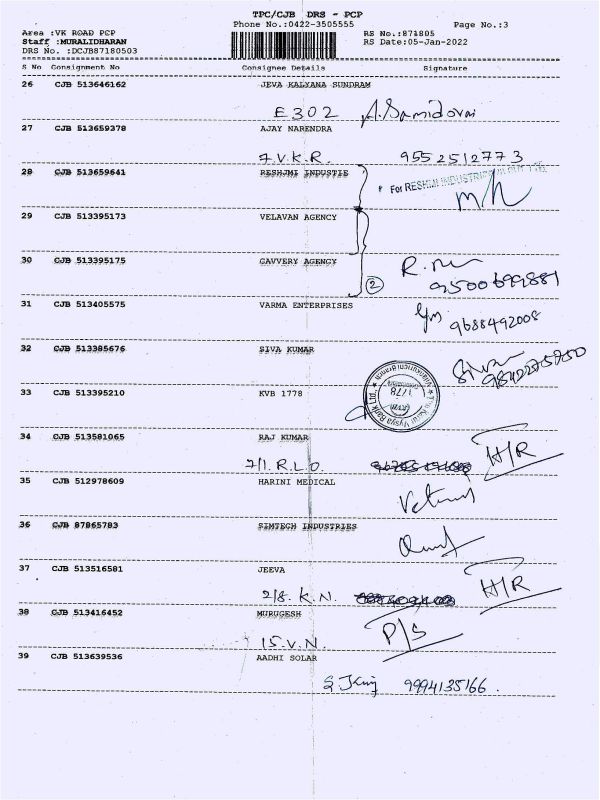 TPC/CJB DRS - PCP
Phone No.:0422-3505555
Page No.:3
Area :VK ROAD PCP
RS No.:871805
Staff :MURALIDHARAN
RS Date:05-Jan-2022
DRS No. :DCJB87180503
S No Consignment No Consignee Details Signature
26 CJB 513646162 JEVA KALYANA SUNDRAM
E302 A. Samidorai
27 CJB 513659378 AJAY NARENDRA
7.V.K.R. 9552512773
28 CJB 513659641 RESHJMI INDUSTIE
For RESHMI INDUSTRIES
29 CJB 513395173 VELAVAN AGENCY
30 CJB 513395175 GAVVERY AGENCY
2
9500699881
31 CJB 513405575 VARMA ENTERPRISES
9688492008
32 CJB 513385676 SIVA KUMAR
Siva
33 CJB 513395210 KVB 1778
The Karur Vysya Bank Ltd.
1778
34 CJB 513581065 RAJ KUMAR
7/1. R.L.O. H/R
35 CJB 512978609 HARINI MEDICAL
36 CJB 87865783 SIMTECH INDUSTRIES
37 CJB 513516581 JEEVA
2/8. K.N. H/R
38 CJB 513416452 MURUGESH
15.V.N. P/S
39 CJB 513639536 AADHI SOLAR
9994135166.